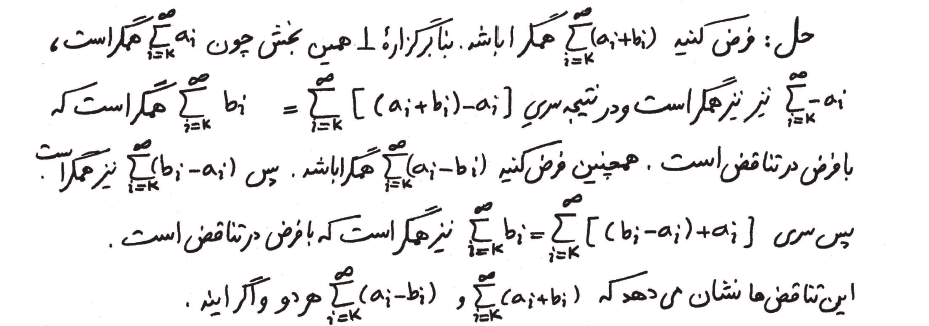 حل : فرض کنید $\sum_{i=k}^{\infty}(a_i+b_i)$ همگرا باشد. بنابر گزارهٔ ۱ همین بخش چون $\sum_{i=k}^{\infty} a_i$ همگراست،
$\sum_{i=k}^{\infty} -a_i$ نیز نیز همگراست و در نتیجه سری $\sum_{i=k}^{\infty} b_i = \sum_{i=k}^{\infty} [(a_i+b_i)-a_i]$ همگراست که
با فرض در تناقض است . همچنین فرض کنید $\sum_{i=k}^{\infty}(a_i-b_i)$ همگرا باشد. پس $\sum_{i=k}^{\infty}(b_i-a_i)$ نیز همگراست.
پس سری $\sum_{i=k}^{\infty} b_i = \sum_{i=k}^{\infty} [(b_i-a_i)+a_i]$ نیز همگراست که با فرض در تناقض است .
این تناقض ها نشان می دهد که $\sum_{i=k}^{\infty}(a_i+b_i)$ و $\sum_{i=k}^{\infty}(a_i-b_i)$ هر دو واگرایند .